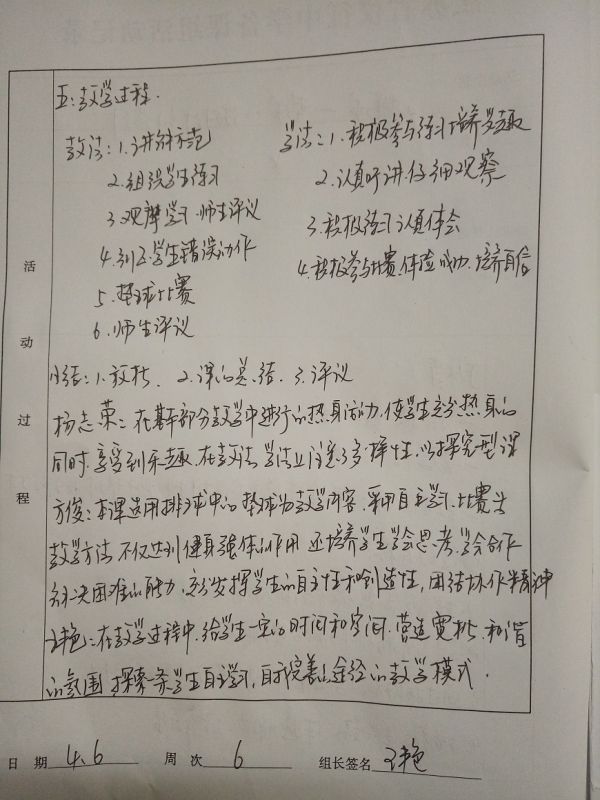 五:教学过程.
教法:1.讲解示范
2.组织学生练习
3.观摩学习.师生评议
4.纠正学生错误动作
5.垫球比赛
6.师生评议
学法:1.积极参与练习培养兴趣
2.认真听讲.仔细观察
3.积极练习认真体会
4.积极参与比赛.体验成功.培养自信
小结:1.放松. 2.课的总结. 3.评议
杨志荣:在基本部分教学中进行的热身活动,使学生充分热身的
同时.享受到乐趣.在教法学法上注意了多样性.以探究型课
方俊:本课选用排球中的垫球为教学内容.采用自主学习.比赛为
教学方法.不仅达到健身强体的作用.还培养学生学会思考.学会合作
解决困难的能力.充分发挥学生的自主性和创造性,团结协作精神
王艳:在教学过程中.给学生一定的时间和空间.营造宽松.和谐
的氛围.探索一条学生自主学习,自我完善的途径的教学模式.
活
动
过
程
日 期 4.6 周 次 6 组长签名 王艳